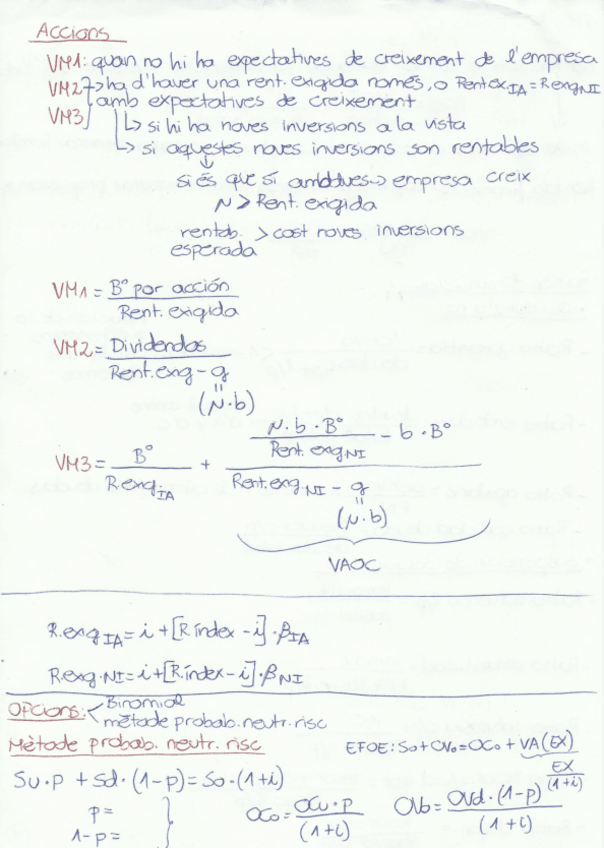 Accions
VM1: quan no hi ha expectatives de creixement de l'empresa
VM2 → ha d'haver una rent. exigida només, o Rentex IA = Rexg NI
VM3 amb expectatives de creixement
↳ si hi ha noves inversions a la vista
↳ si aquestes noves inversions son rentables
↓
si és que sí → empresa creix
r > Rent. exigida
rentab. > cost noves inversions
esperada
VM1 = Bº por acción / Rent. exigida
VM2 = Dividendos / Rent. exg - g
(r·b)
VM3 = Bº / Rexg IA + (r·b·Bº / Rent. exg NI - b·Bº) / (Rent. exg NI - g)
(r·b)
VAOC
R.exg IA = i + [R índex - i]·β IA
R.exg. NI = i + [R índex - i]·β NI
OPCIONS: Binomial
mètode probab. neutr. risc
Mètode probab. neutr. risc
EFOE: So + OVo = OCo + VA(EX)
EX / (1+i)
Su·p + Sd·(1-p) = So·(1+i)
p =
1-p =
OCo = OCu·p / (1+i)
OVo = OVd·(1-p) / (1+i)